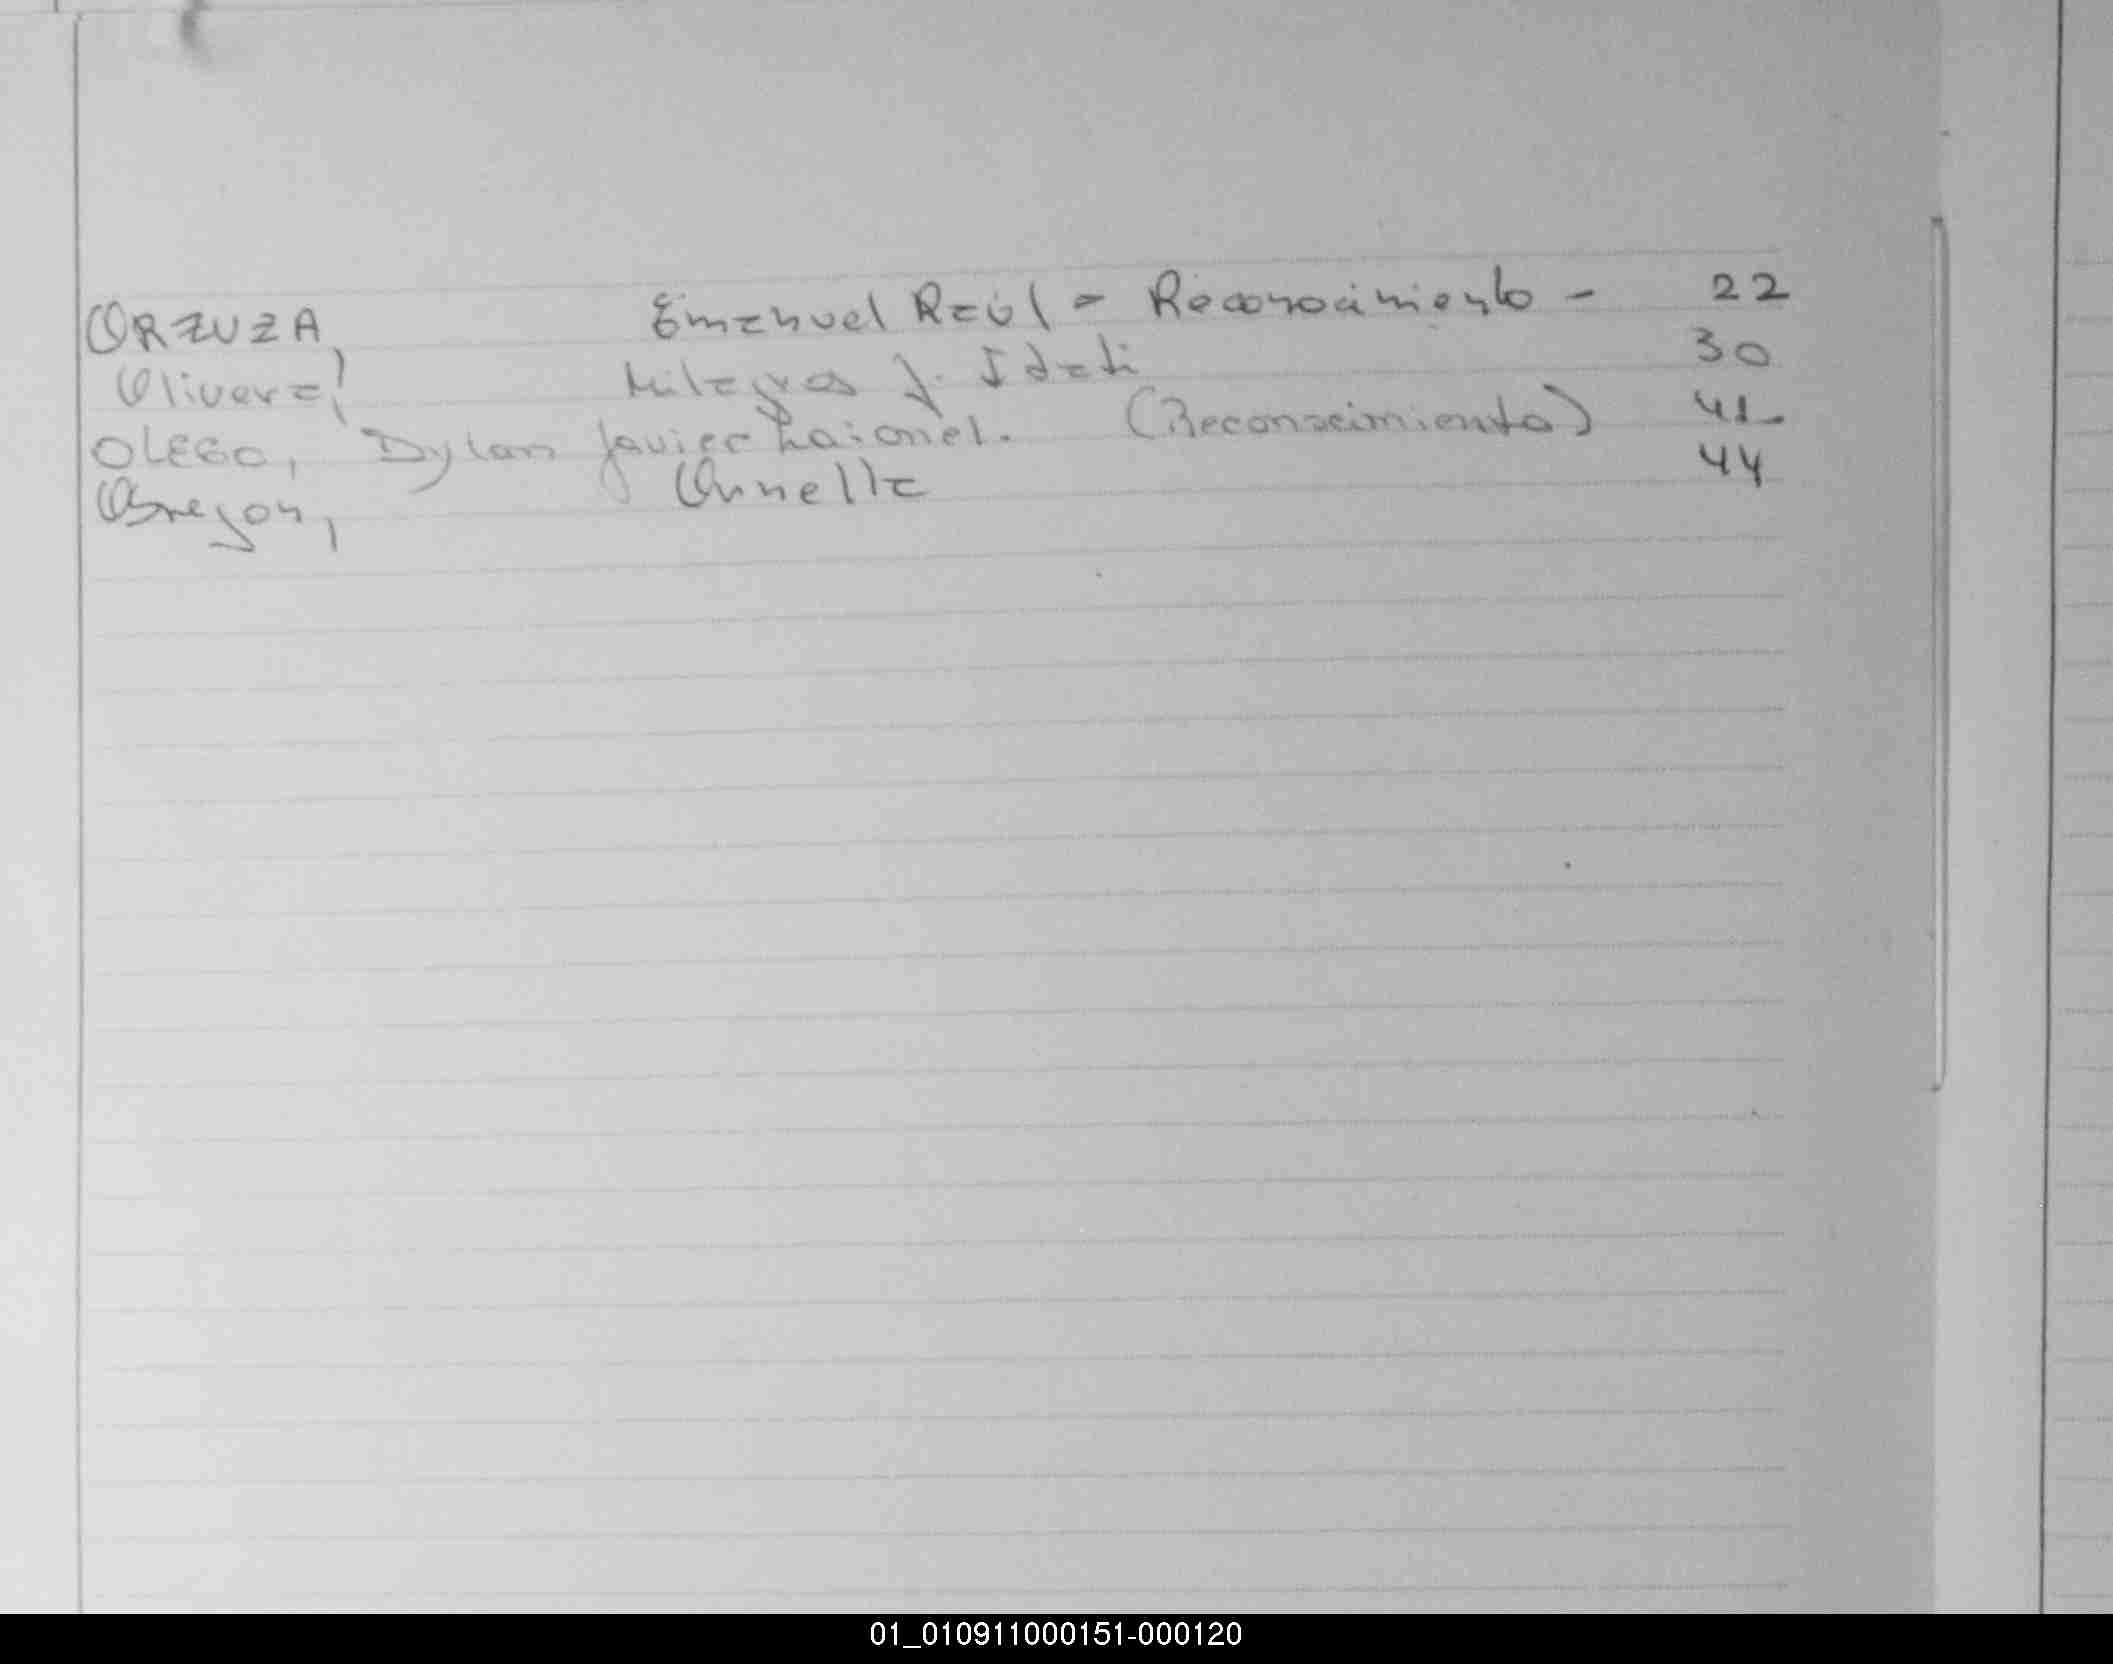 ORZUZA, Emanuel Raúl - Reconocimiento - 22
Olivera, Milagros J. Idati 30
OLEGO, Dylan Javier Laionel. (Reconocimiento) 41
Obregon, Ornella 44
01_010911000151-000120